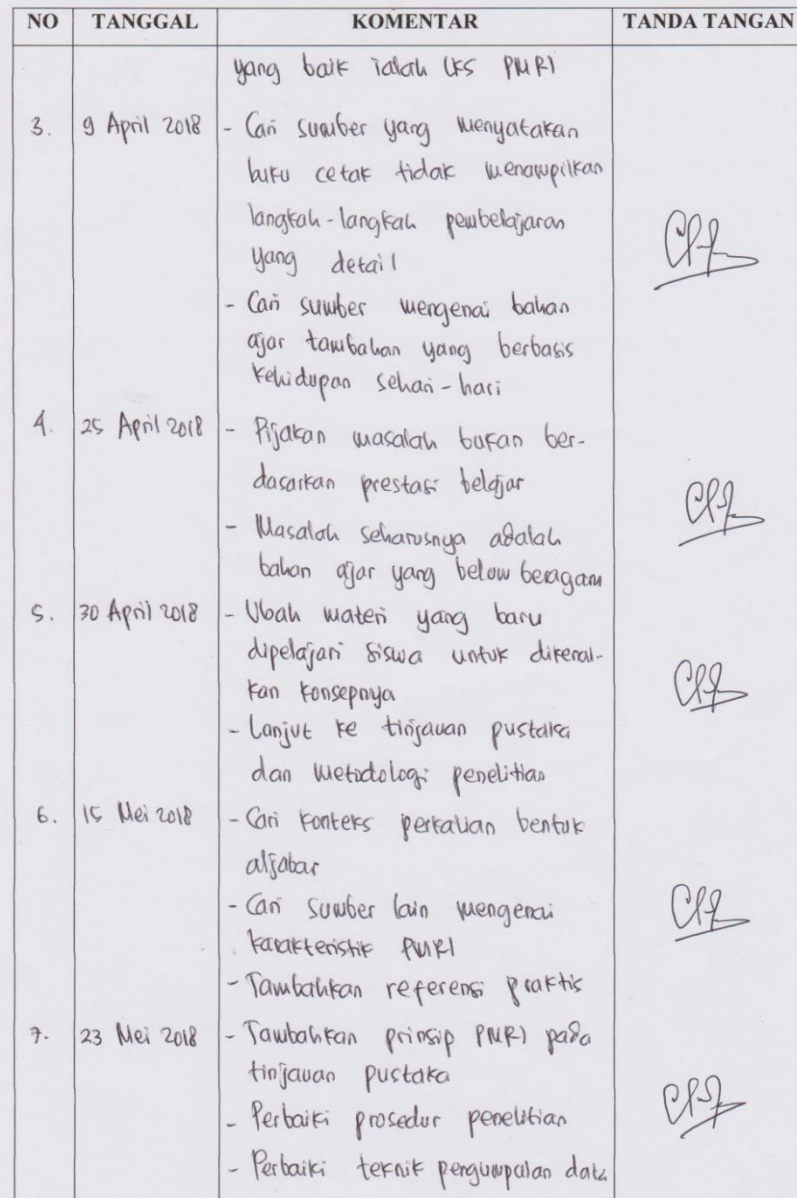 NO TANGGAL KOMENTAR TANDA TANGAN
yang baik ialah LKS PMRI
3. 9 April 2018 - Cari sumber yang menyatakan
buku cetak tidak menampilkan
langkah-langkah pembelajaran
yang detail
- Cari sumber mengenai bahan
ajar tambahan yang berbasis
kehidupan sehari-hari
4. 25 April 2018 - Pijakan masalah bukan ber-
dasarkan prestasi belajar
- Masalah seharusnya adalah
bahan ajar yang belom beragam
5. 30 April 2018 - Ubah materi yang baru
dipelajari siswa untuk dikenal-
kan konsepnya
- Lanjut ke tinjauan pustaka
dan metodologi penelitian
6. 15 Mei 2018 - Cari konteks perkalian bentuk
aljabar
- Cari sumber lain mengenai
karakteristik PMRI
- Tambahkan referensi praktis
7. 23 Mei 2018 - Tambahkan prinsip PMRI pada
tinjauan pustaka
- Perbaiki prosedur penelitian
- Perbaiki teknik pengumpulan data